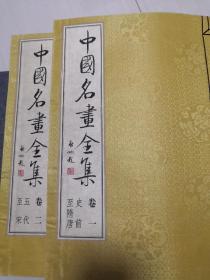 中國名畫全集
卷一
史前
至隋唐
中國名畫全集
卷二
五代
至宋